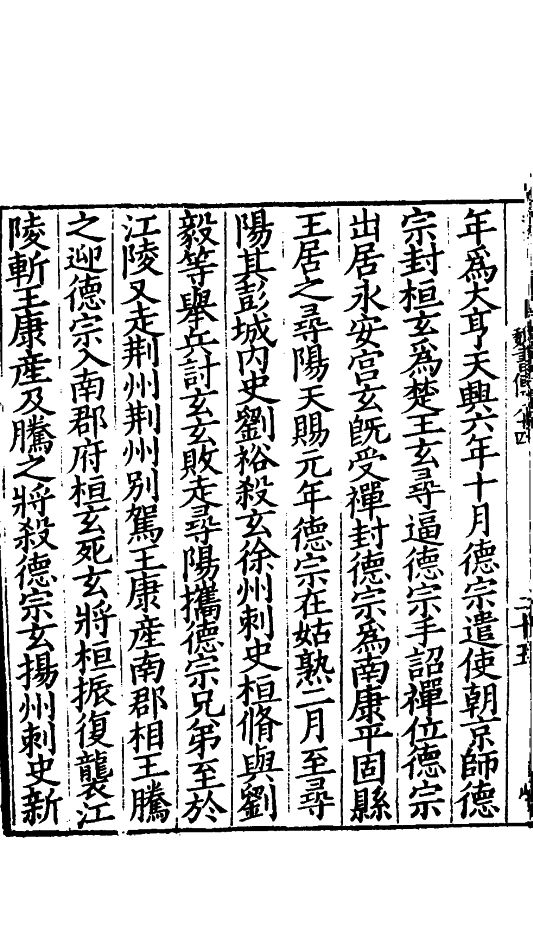 年爲大亨天興六年十月德宗遣使朝京師德
宗封桓玄爲楚王玄尋逼德宗手詔禪位德宗
出居永安宫玄旣受禪封德宗爲南康平固縣
王居之尋陽天賜元年德宗在姑熟二月至尋
陽其彭城内史劉裕殺玄徐州刺史桓脩與劉
毅等舉兵討玄玄敗走尋陽攜德宗兄弟至於
江陵又走荆州荆州别駕王康産南郡相王騰
之迎德宗入南郡府桓玄死玄將桓振復襲江
陵斬王康産及騰之將殺德宗玄揚州刺史新